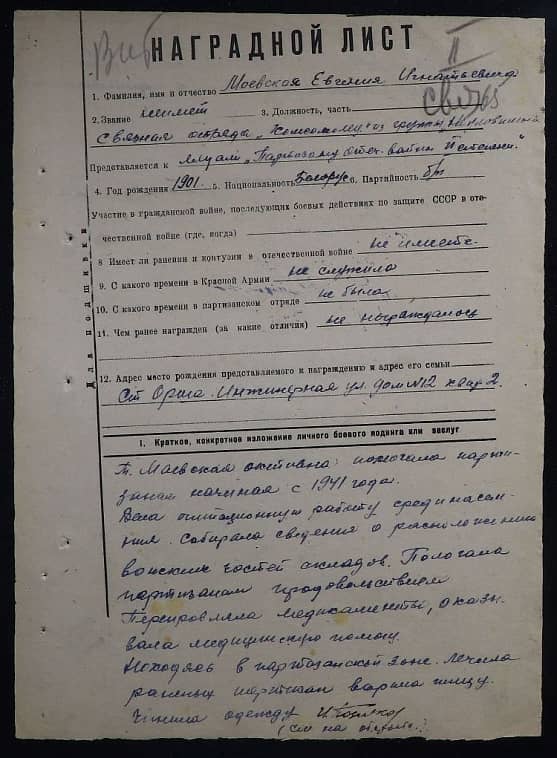 НАГРАДНОЙ ЛИСТ
II
1. Фамилия, имя и отчество Маевская Евгения Игнатьевна
2. Звание неимеет 3. Должность, часть
Связная отряда „Комсомолец" из группы
Представляется к медали „Партизану отеч. войны II степени".
4. Год рождения 1901. 5. Национальность Белорус 6. Партийность б/п
Участие в гражданской войне, последующих боевых действиях по защите СССР в оте-
чественной войне (где, когда)
8 Имеет ли ранения и контузии в отечественной войне не имеет.
9. С какого времени в Красной Армии не служила
10. С какого времени в партизанском отряде не была
11. Чем ранее награжден (за какие отличия) не награждалась
12. Адрес место рождения представляемого к награждению и адрес его семьи
Ст Орша. Инжинерная ул. дом №12 квар 2.
Для подшивки
I. Краткое, конкретное изложение личного боевого подвига или заслуг
т. Маевская активна помогала парти-
занам начиная с 1941 года.
Вела агитационную работу среди насел-
ения. Собирала сведения о расположении
воинских частей складов. Помогала
партизанам продовольствием
Переправляла медикаменты, оказы
вала медицинскую помощ.
Находясь в партизанской зоне. лечила
раненых партизан варила пищу.
Чинила одежду
(см на обороте.)